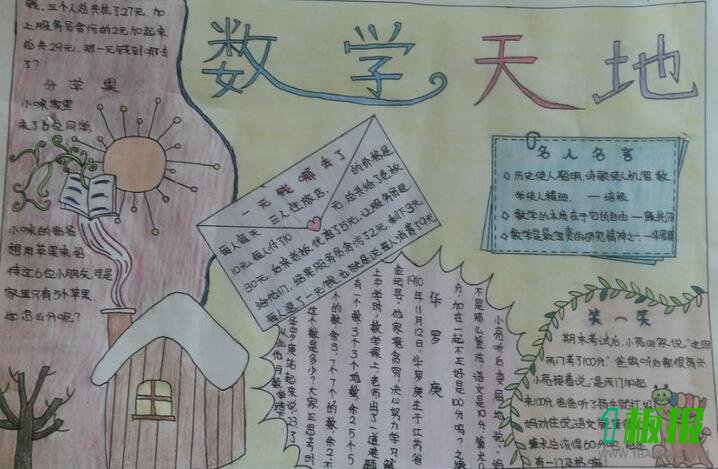 数学天地
钱，三个人总共花了27元，加
上服务员贪污的2元加起来
总共29元。那一元钱到哪去
了？
分苹果
小咪家里
来了6位同学。
小咪的爸爸
想用苹果来招
待这6位小朋友，可是
家里只有5个苹果。
怎么分呢？
一元钱哪去了
三人住旅店，
每人每天
的价格是
10元，每人付了10
元，总共给了老板
30元，后来老板优惠了5元，让服务员退
给他们，结果服务员贪污了2元，剩下3元
每人退了一元钱，也就是说每人消费了9元
名人名言
历史使人聪明，诗歌使人机智，数
学使人精细。
数学的本质在于它的自由
数学是最宝贵的研究精神之一
华罗庚
1910年11月12日，华罗庚生于江苏省
金坛县，他家境贫穷，决心努力学习
上中学时，数学课上老师出了一道难题
有一个数，3个3个地数，余2，5个5
个的数，余3，7个7个的数，余2，
这个数是多少？大家正思考时
华罗庚站起来说：23
笑一笑
期末考试后，小亮回家说：这回
两门考了100分，爸妈听后都很高兴
小亮接着说：是两门加起
来100分，爸爸听了
妈劝住说：语文
1板报